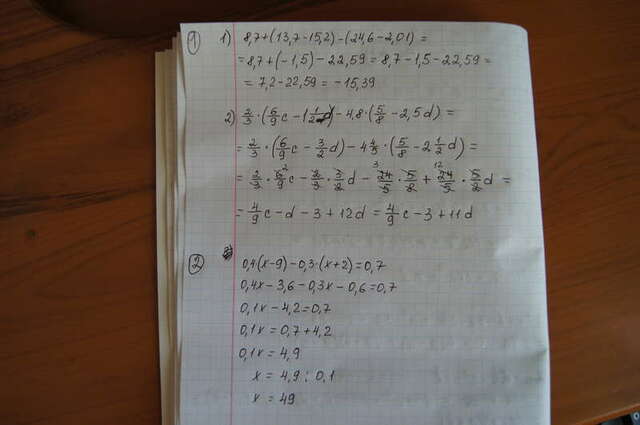 ① 1) 8,7+(13,7-15,2)-(24,6-2,01) =
= 8,7+(-1,5)-22,59 = 8,7-1,5-22,59 =
= 7,2-22,59 = -15,39
2) 2/3 · (6/9 c - 1 1/2 d) - 4,8 · (5/8 - 2,5d) =
= 2/3 · (6/9 c - 3/2 d) - 4 4/5 · (5/8 - 2 1/2 d) =
= 2/3 · 6/9 c - 2/3 · 3/2 d - 24/5 · 5/8 + 24/5 · 5/2 d =
= 4/9 c - d - 3 + 12d = 4/9 c - 3 + 11d
②
0,4·(x-9)-0,3·(x+2)=0,7
0,4x-3,6-0,3x-0,6=0,7
0,1x-4,2=0,7
0,1x = 0,7+4,2
0,1x = 4,9
x = 4,9 : 0,1
x = 49